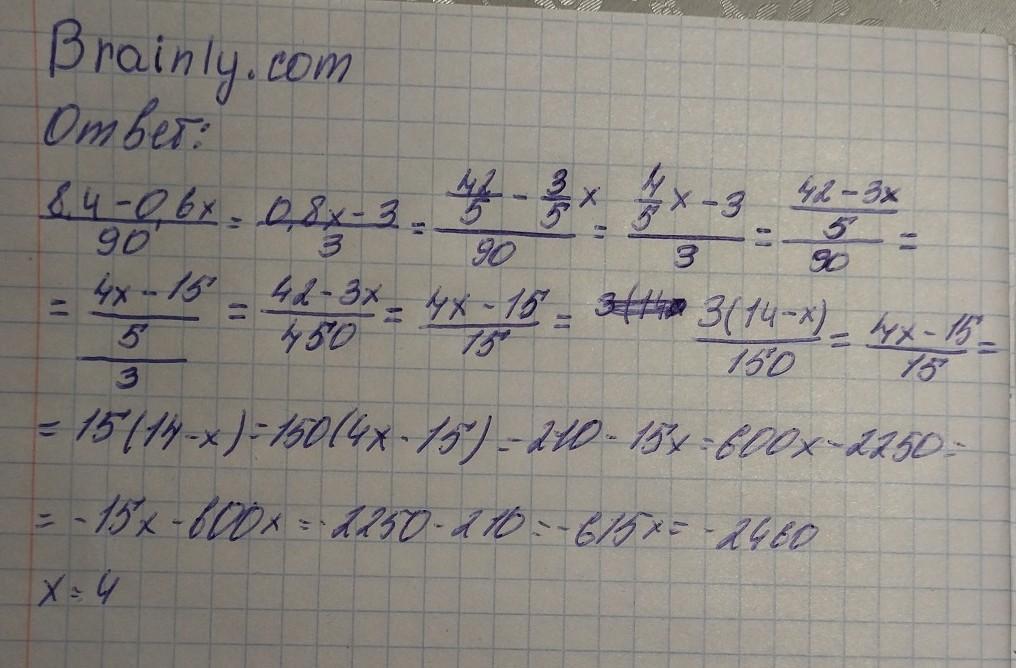 Brainly.com
Ответ:
(8,4 - 0,6x)/90 = (0,8x - 3)/3 = (42/5 - 3/5 x)/90 = (4/5 x - 3)/3 = ((42 - 3x)/5)/90 =
= ((4x - 15)/5)/3 = (42 - 3x)/450 = (4x - 15)/15 = 3(14-x)/150 = (4x - 15)/15 =
= 15(14-x) = 150(4x - 15) = 210 - 15x = 600x - 2250 =
= -15x - 600x = -2250 - 210 = -615x = -2460
x = 4